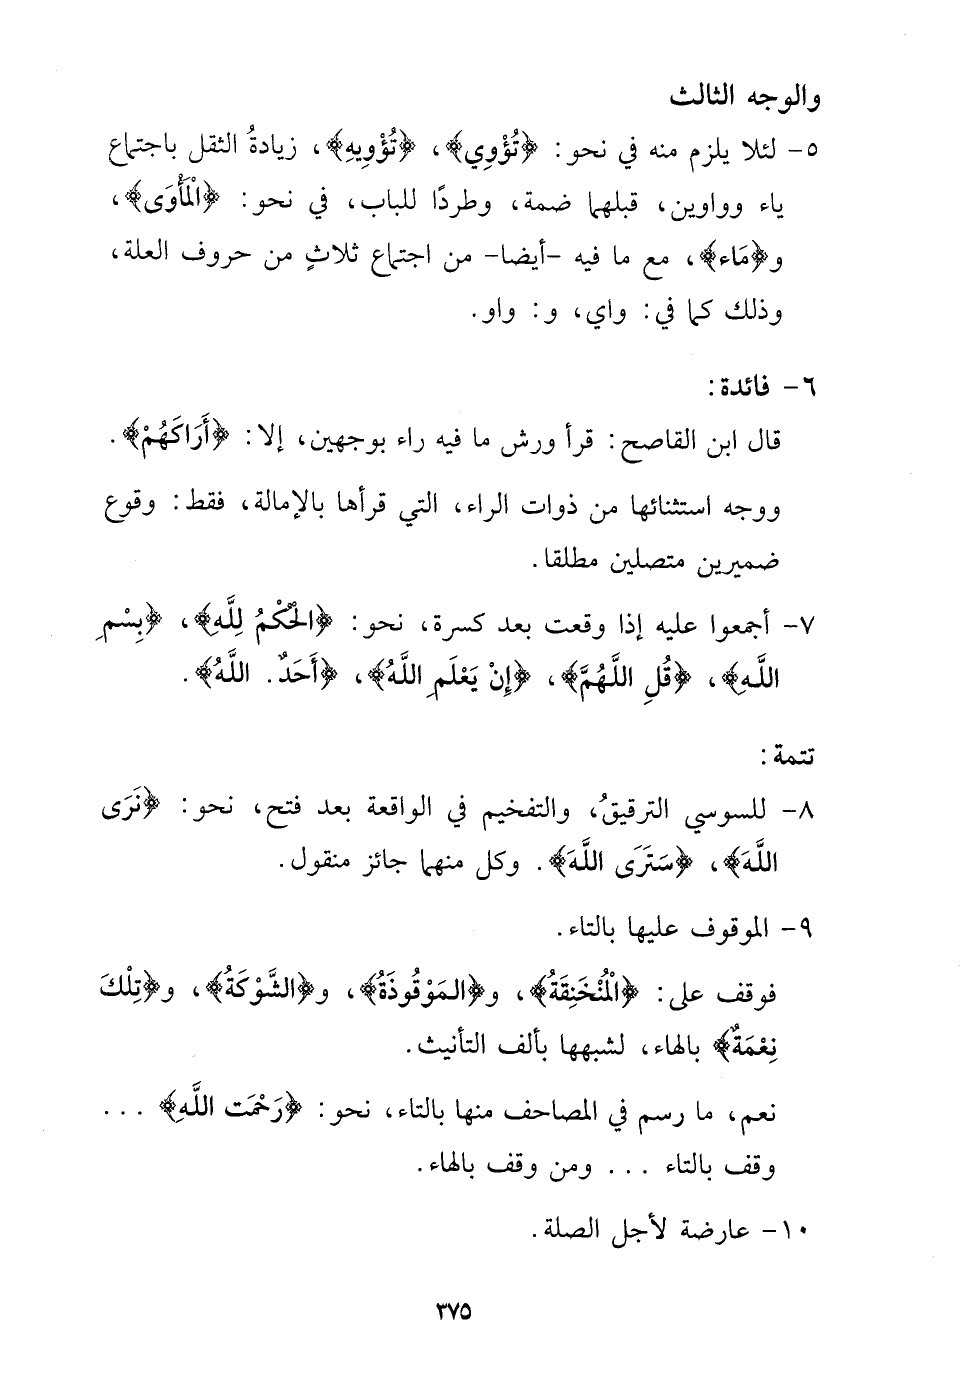 والوجه الثالث
٥- لئلا يلزم منه في نحو: ﴿تُؤْوِي﴾، ﴿تُؤْوِيهِ﴾، زيادةُ الثقل باجتماع
ياء وواوين، قبلهما ضمة، وطردًا للباب، في نحو: ﴿الْمَأْوَى﴾،
و﴿مَاء﴾، مع ما فيه -أيضا- من اجتماع ثلاثٍ من حروف العلة،
وذلك كما في: واي، و: واو.
٦- فائدة:
قال ابن القاصح: قرأ ورش ما فيه راء بوجهين، إلا: ﴿أَرَاكَهُمْ﴾.
ووجه استثنائها من ذوات الراء، التي قرأها بالإمالة، فقط: وقوع
ضميرين متصلين مطلقا.
٧- أجمعوا عليه إذا وقعت بعد كسرة، نحو: ﴿الْحُكْمُ لِلَّهِ﴾، ﴿بِسْمِ
اللَّهِ﴾، ﴿قُلِ اللَّهُمَّ﴾، ﴿إِنْ يَعْلَمِ اللَّهُ﴾، ﴿أَحَدٌ. اللَّهُ﴾.
تتمة:
٨- للسوسي الترقيقُ، والتفخيم في الواقعة بعد فتح، نحو: ﴿نَرَى
اللَّهَ﴾، ﴿سَتَرَى اللَّهَ﴾. وكل منهما جائز منقول.
٩- الموقوف عليها بالتاء.
فوقف على: ﴿الْمُنْخَنِقَةُ﴾، و﴿المَوْقُوذَةُ﴾، و﴿الشَّوْكَةُ﴾، و﴿تِلْكَ
نِعْمَةٌ﴾ بالهاء، لشبهها بألف التأنيث.
نعم، ما رسم في المصاحف منها بالتاء، نحو: ﴿رَحْمَت اللَّهِ﴾ ...
وقف بالتاء ... ومن وقف بالهاء.
١٠- عارضة لأجل الصلة.
٣٧٥